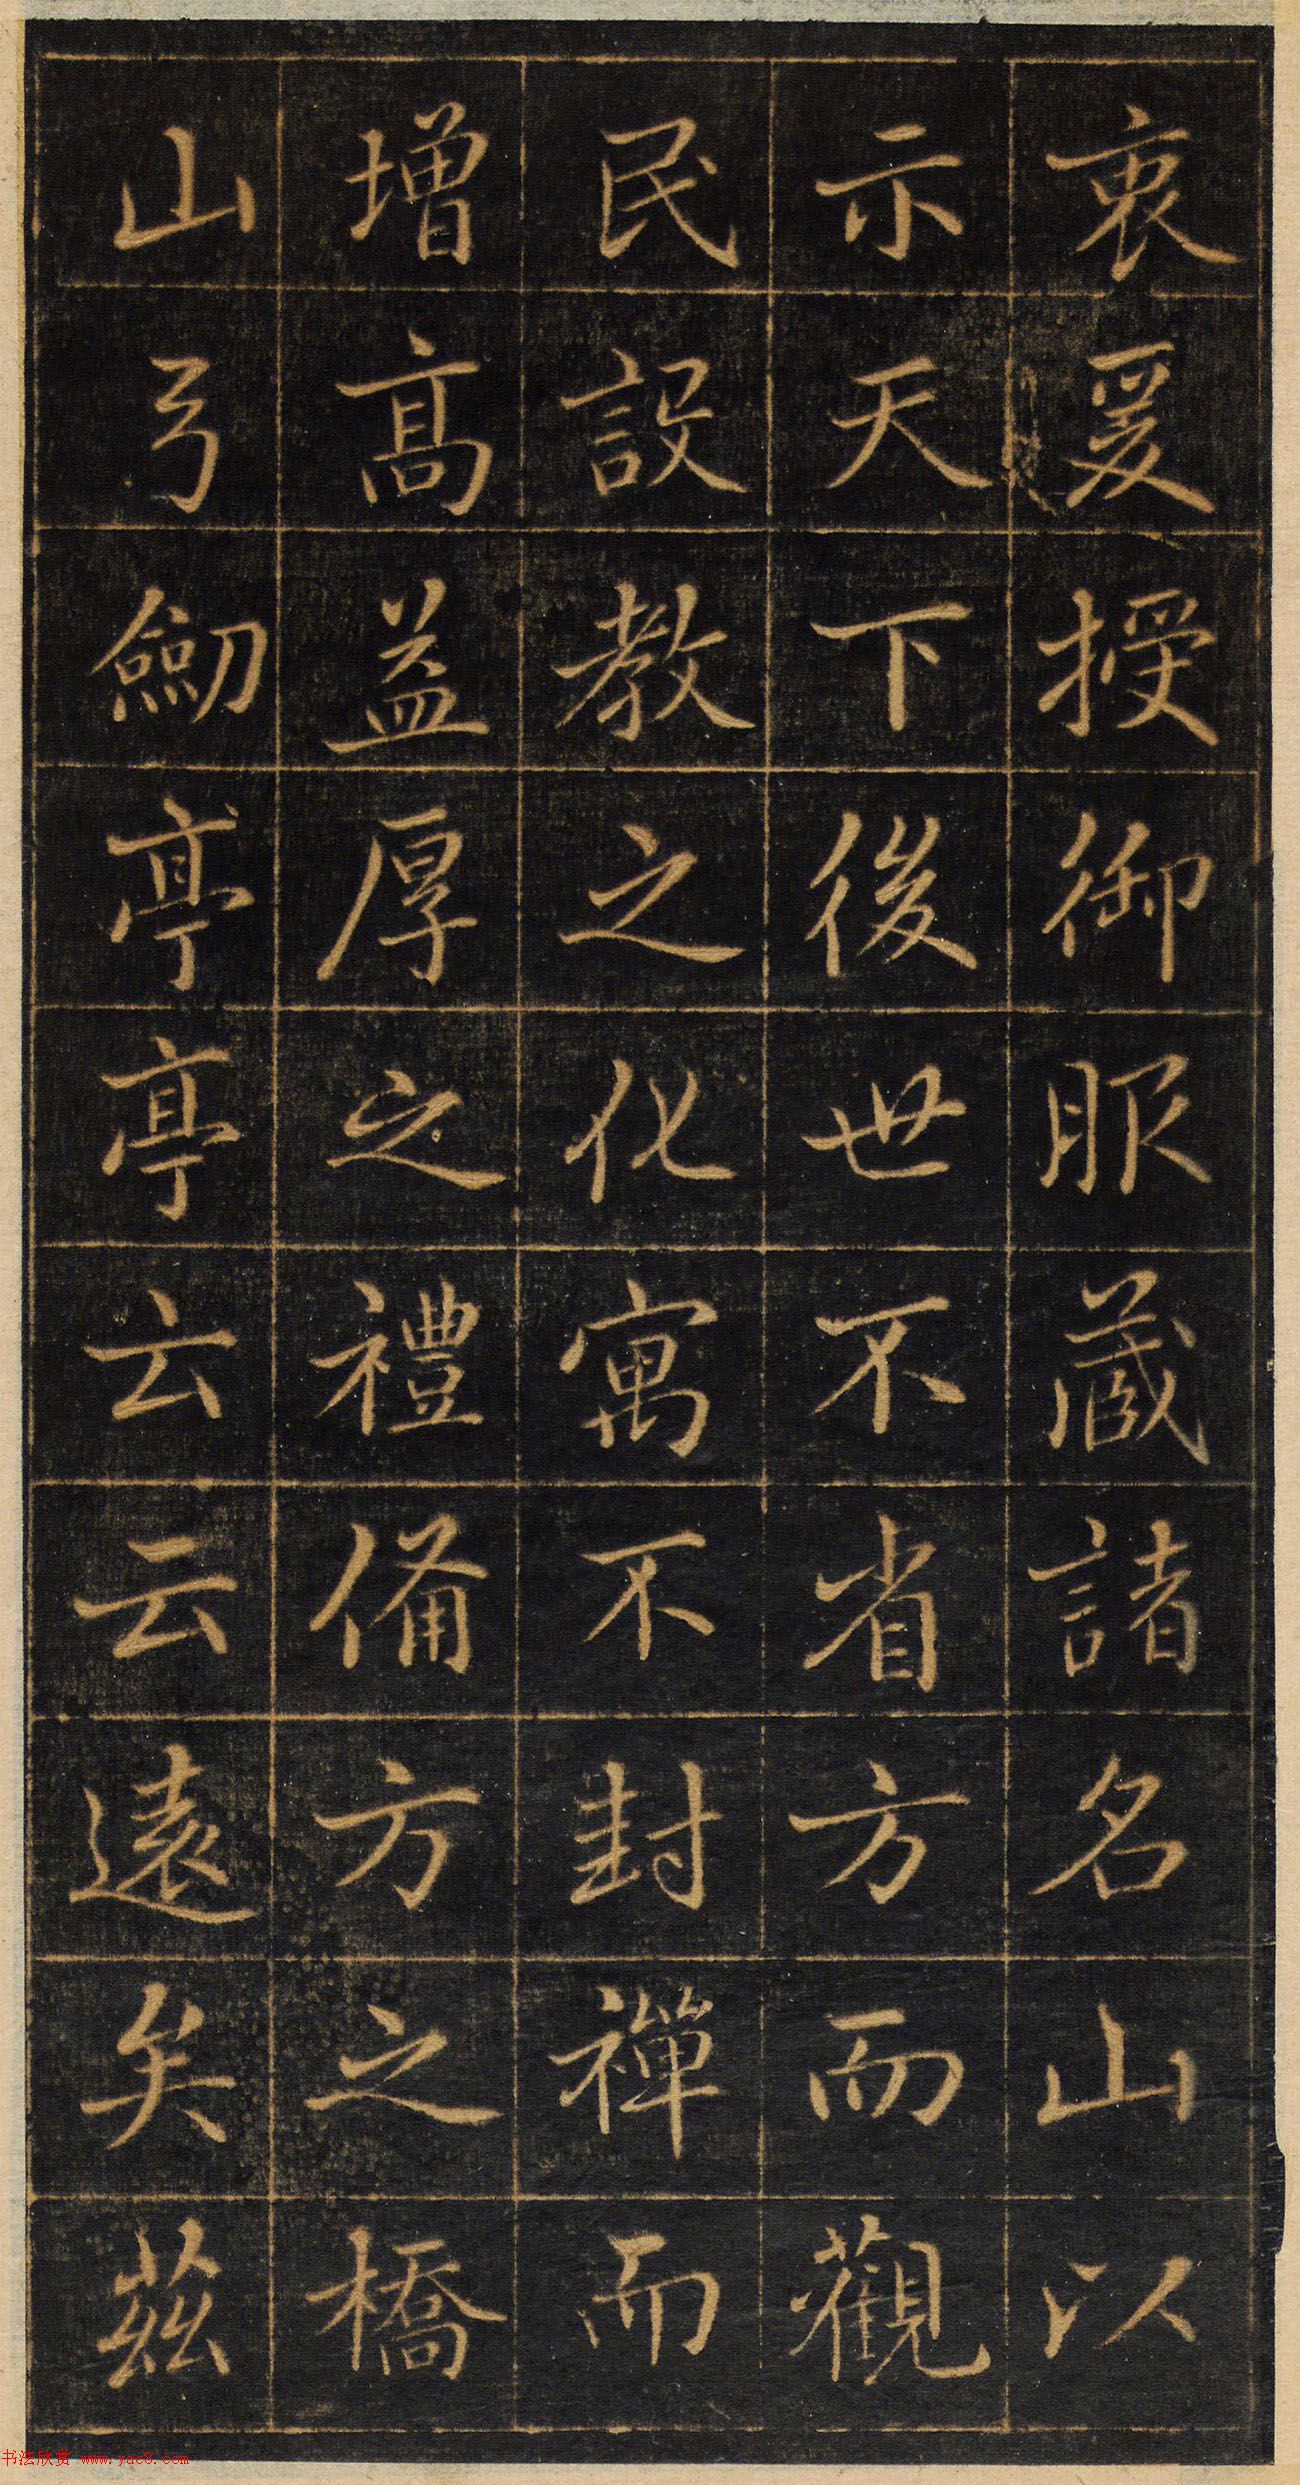 衷爰授御服蔵諸名山以
示天下後世不省方而觀
民設教之化寓不封禪而
增高益厚之禮備方之橋
山弓劒亭亭云云遠矣茲
书法欣赏 www.yac8.com